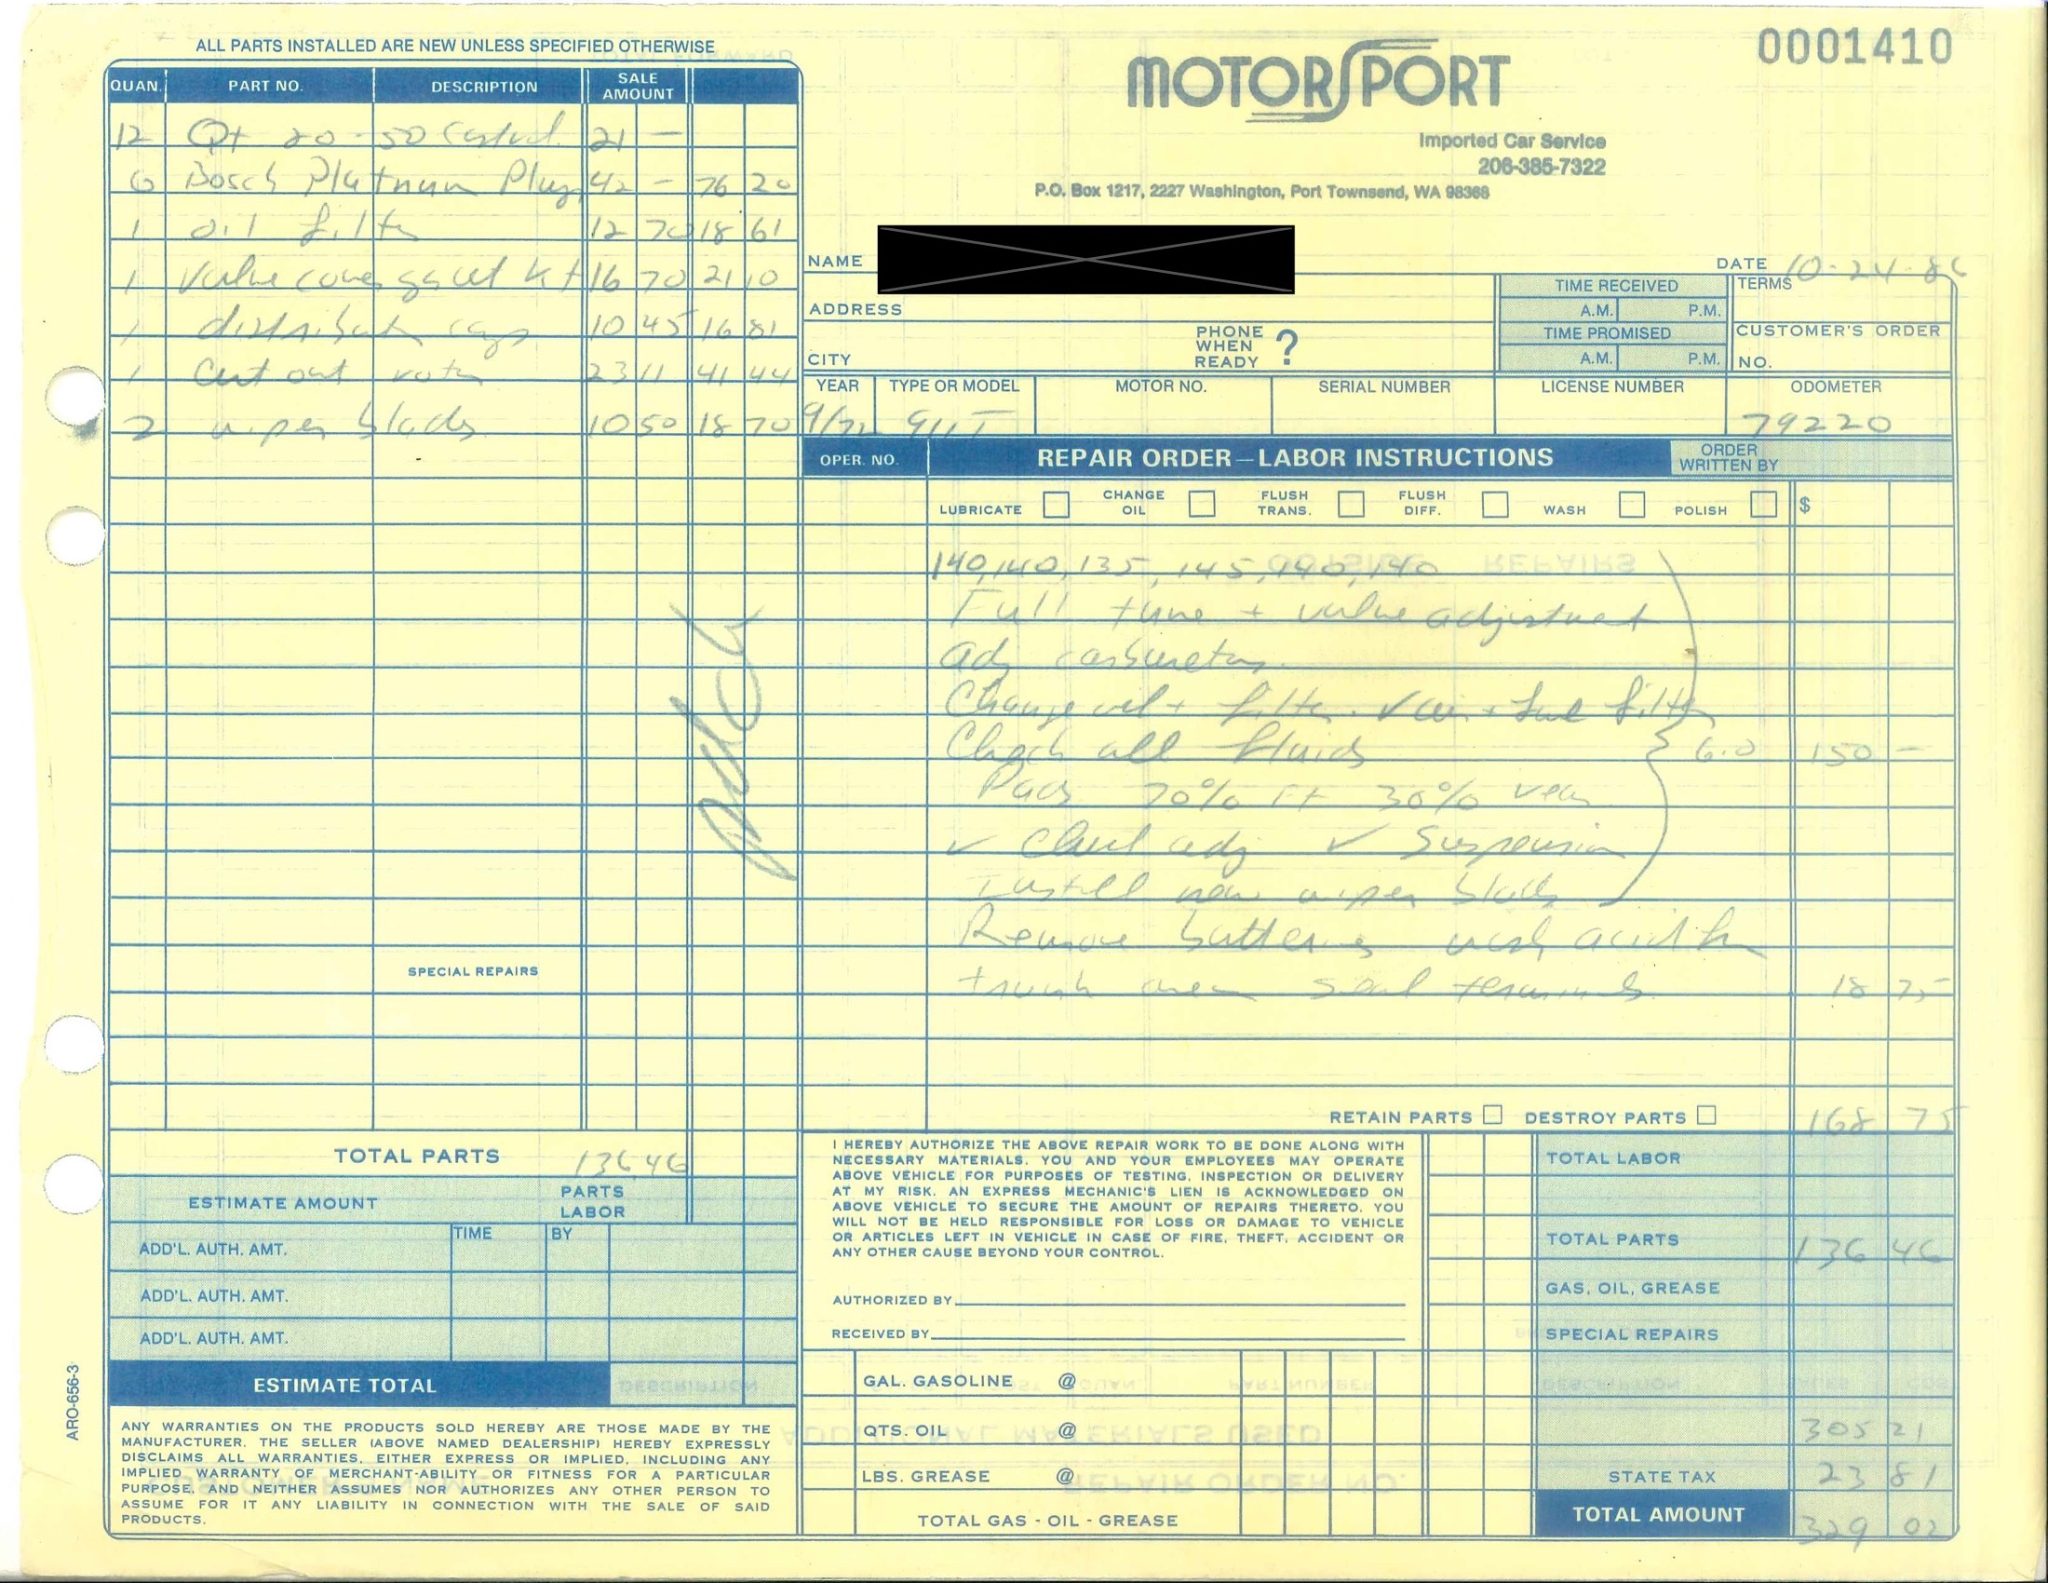 ALL PARTS INSTALLED ARE NEW UNLESS SPECIFIED OTHERWISE
QUAN. PART NO. DESCRIPTION SALE AMOUNT
12 Qt 20-50 Castrol 21 —
6 Bosch Platnum Plugs 42 — 76 20
1 oil filter 12 70 18 61
1 valve cover gasket kit 16 70 21 10
1 distributor cap 10 45 16 81
1 Cut out rotor 23 11 41 44
2 wiper blades 10 50 18 70
SPECIAL REPAIRS
TOTAL PARTS 136 46
ESTIMATE AMOUNT PARTS LABOR
TIME BY
ADD'L. AUTH. AMT.
ADD'L. AUTH. AMT.
ADD'L. AUTH. AMT.
ESTIMATE TOTAL
ANY WARRANTIES ON THE PRODUCTS SOLD HEREBY ARE THOSE MADE BY THE
MANUFACTURER. THE SELLER (ABOVE NAMED DEALERSHIP) HEREBY EXPRESSLY
DISCLAIMS ALL WARRANTIES, EITHER EXPRESS OR IMPLIED, INCLUDING ANY
IMPLIED WARRANTY OF MERCHANT-ABILITY OR FITNESS FOR A PARTICULAR
PURPOSE, AND NEITHER ASSUMES NOR AUTHORIZES ANY OTHER PERSON TO
ASSUME FOR IT ANY LIABILITY IN CONNECTION WITH THE SALE OF SAID
PRODUCTS.
ARO-656-3
0001410
MOTORSPORT
Imported Car Service
206-385-7322
P.O. Box 1217, 2227 Washington, Port Townsend, WA 98368
NAME DATE 10-24-86
ADDRESS TIME RECEIVED A.M. P.M. TERMS
CITY PHONE WHEN READY ? TIME PROMISED A.M. P.M. CUSTOMER'S ORDER NO.
YEAR TYPE OR MODEL MOTOR NO. SERIAL NUMBER LICENSE NUMBER ODOMETER
9/72 911T 79220
OPER. NO. REPAIR ORDER—LABOR INSTRUCTIONS ORDER WRITTEN BY
LUBRICATE CHANGE OIL FLUSH TRANS. FLUSH DIFF. WASH POLISH $
140, 140, 135, 145, 140, 140
Full tune + valve adjustment
adj carburetors
Change oil + filter. ✓ air + fuel filter
Check all fluids 6.0 150 —
Pads 70% Ft 30% rear
✓ Clutch adj ✓ Suspension
Install new wiper blades
Remove batteries wash acid
trunk area seal terminals 18 75
RETAIN PARTS DESTROY PARTS 168 75
I HEREBY AUTHORIZE THE ABOVE REPAIR WORK TO BE DONE ALONG WITH
NECESSARY MATERIALS. YOU AND YOUR EMPLOYEES MAY OPERATE
ABOVE VEHICLE FOR PURPOSES OF TESTING, INSPECTION OR DELIVERY
AT MY RISK. AN EXPRESS MECHANIC'S LIEN IS ACKNOWLEDGED ON
ABOVE VEHICLE TO SECURE THE AMOUNT OF REPAIRS THERETO. YOU
WILL NOT BE HELD RESPONSIBLE FOR LOSS OR DAMAGE TO VEHICLE
OR ARTICLES LEFT IN VEHICLE IN CASE OF FIRE, THEFT, ACCIDENT OR
ANY OTHER CAUSE BEYOND YOUR CONTROL.
AUTHORIZED BY
RECEIVED BY
GAL. GASOLINE @
QTS. OIL @
LBS. GREASE @
TOTAL GAS - OIL - GREASE
TOTAL LABOR
TOTAL PARTS 136 46
GAS, OIL, GREASE
SPECIAL REPAIRS
305 21
STATE TAX 23 81
TOTAL AMOUNT 329 02